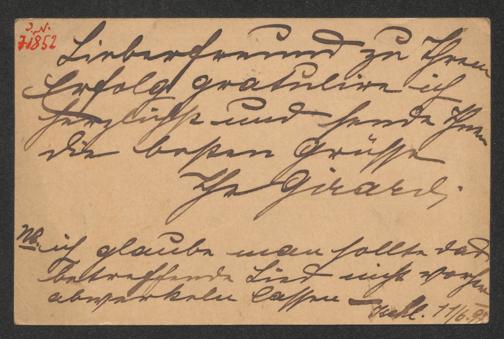 J. N.
71852
Lieber Freund zu Ihrem
Erfolg gratulire ich
herzlichst und sende Ihnen
die besten Grüsse
Ihr Girardi.
NB. ich glaube man sollte das
betreffende Lied nicht vorher
abwerkeln lassen —
Ischl. 11/6. 95